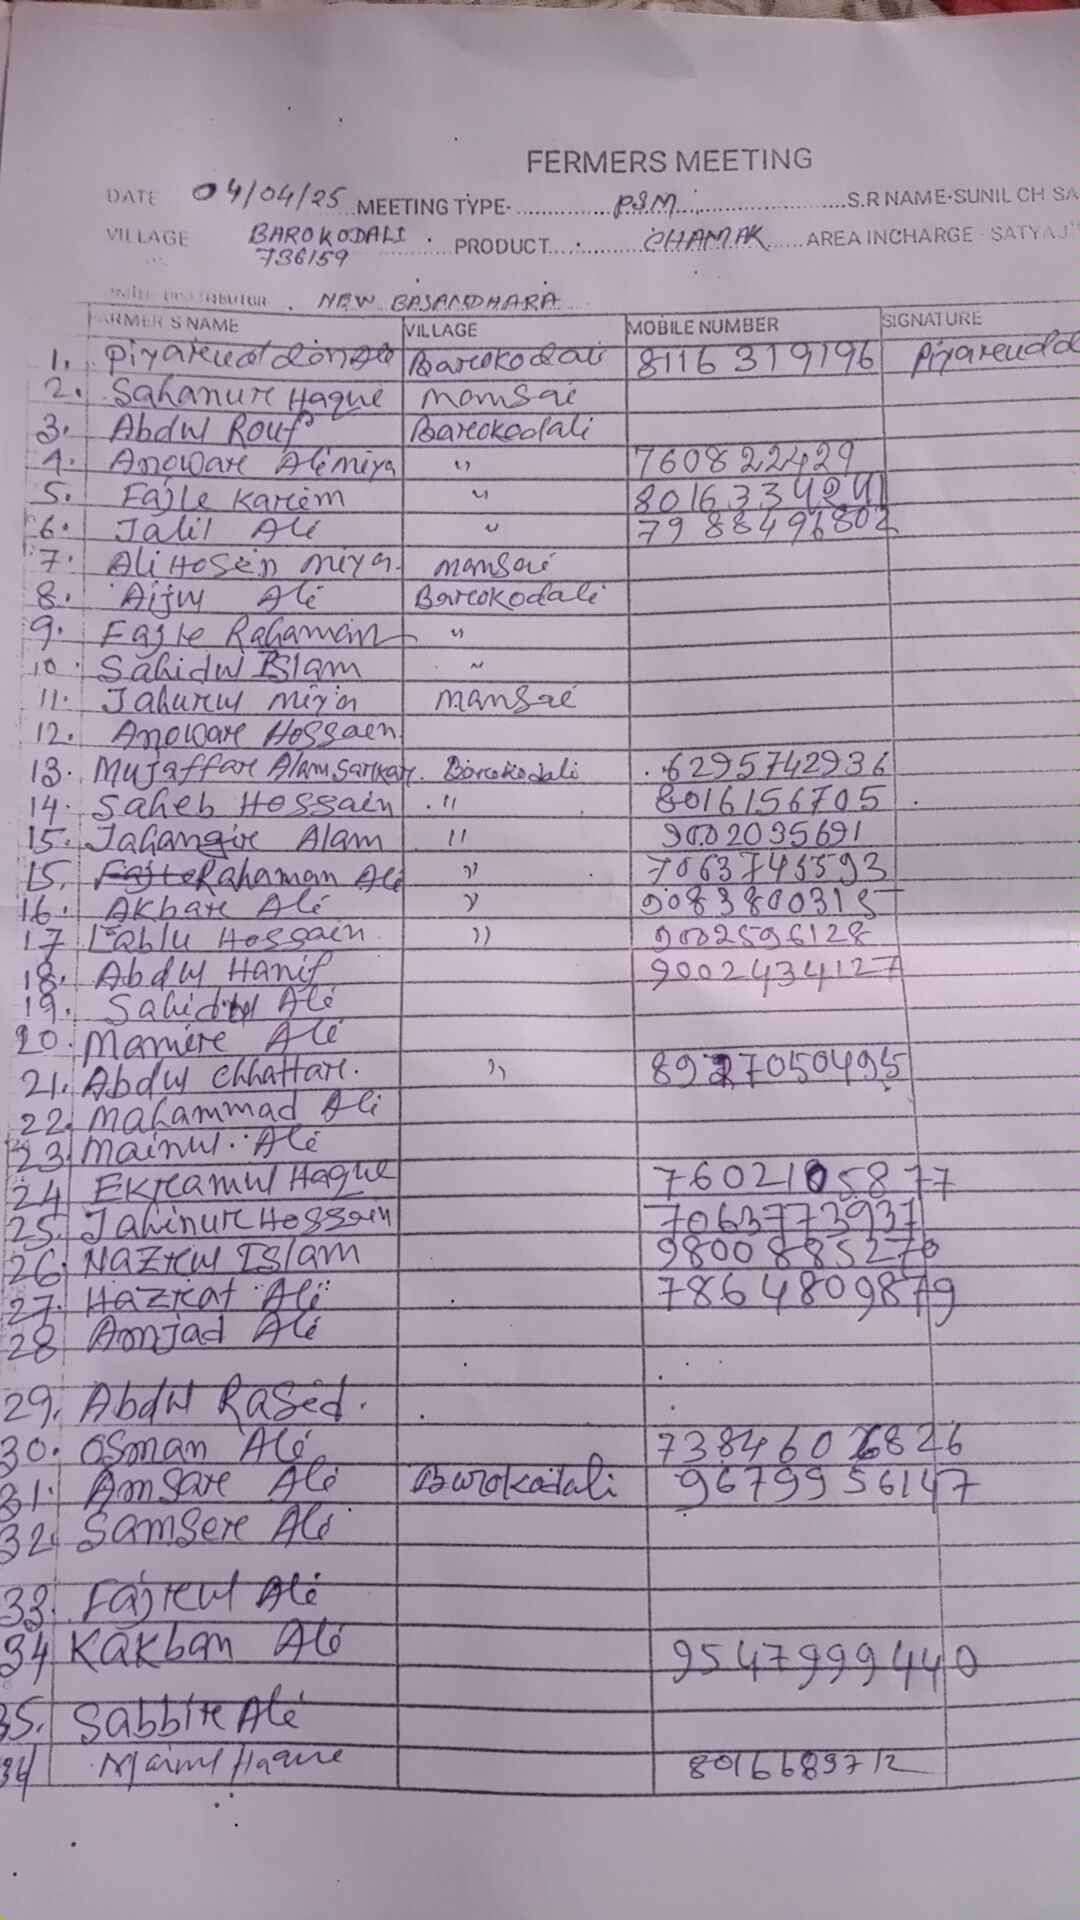 FERMERS MEETING
DATE 04/04/25 MEETING TYPE-.............P.S.M......................S.R NAME-SUNIL CH SA
VILLAGE BAROKODALI. PRODUCT............CHAMAK......AREA INCHARGE - SATYAJ
736159
NEW BASANDHARA
FARMER'S NAME VILLAGE MOBILE NUMBER SIGNATURE
1. Piyareuddin Ali Barokodali 8116319196 Piyareudd
2. Sahanur Haque Mamsai
3. Abdul Rouf Barokodali
4. Anowar Ali miya " 760822429
5. Fajle Karim " 8016334241
6. Jalil Ali " 7988496802
7. Ali Hosen miya. mansai
8. Aijul Ali Barokodali
9. Fajle Rahaman "
10. Sahidul Islam "
11. Jahurul miya mansai
12. Anowar Hossaen
13. Mujaffar Alam Sarkar. Barokodali 6295742936
14. Saheb Hossain " 8016156705
15. Jahangir Alam " 9002035691
15. Rahaman Ali " 7063745593
16. Akbar Ali " 9083800315
17 Lablu Hossain. " 9002596128
18. Abdul Hanif 9002434127
19. Sahidul Ali
20. Mamire Ali
21. Abdul Chhattar. " 8927050495
22. Mahammad Ali
23. Mainul. Ali
24 Ekramul Haque 7602105877
25. Jahinur Hossain 7063773937
26. Nazrul Islam 9800885270
27. Hazrat Ali 7864809879
28 Amjad Ali
29. Abdul Rased.
30. Osman Ali 7384606826
31. Amsar Ali Burokodali 9679956147
32. Samser Ali
33. Fajrul Ali
34 Kakban Ali 9547999440
35. Sabbir Ali
36 Mainul Haque